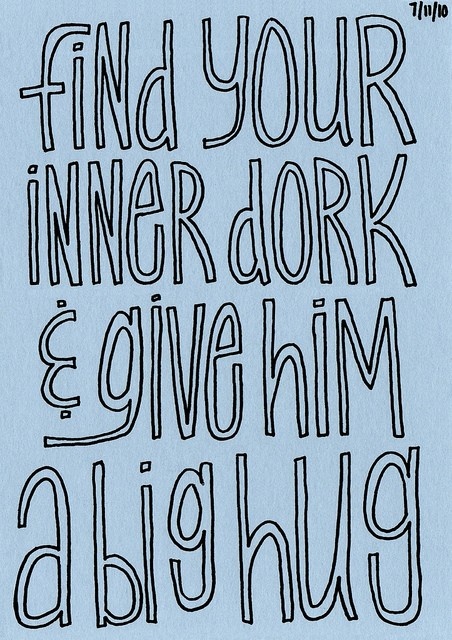 7/11/10
find YOUR
iNNER dORK
& giVe hiM
a big hUg